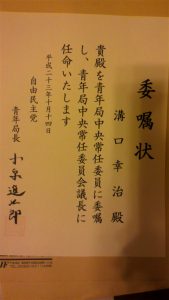 委嘱状
溝口幸治 殿
貴殿を青年局中央常任委員に委嘱
し、青年局中央常任委員会議長に
任命いたします
平成二十三年十月十四日
自由民主党
青年局長 小泉進次郎